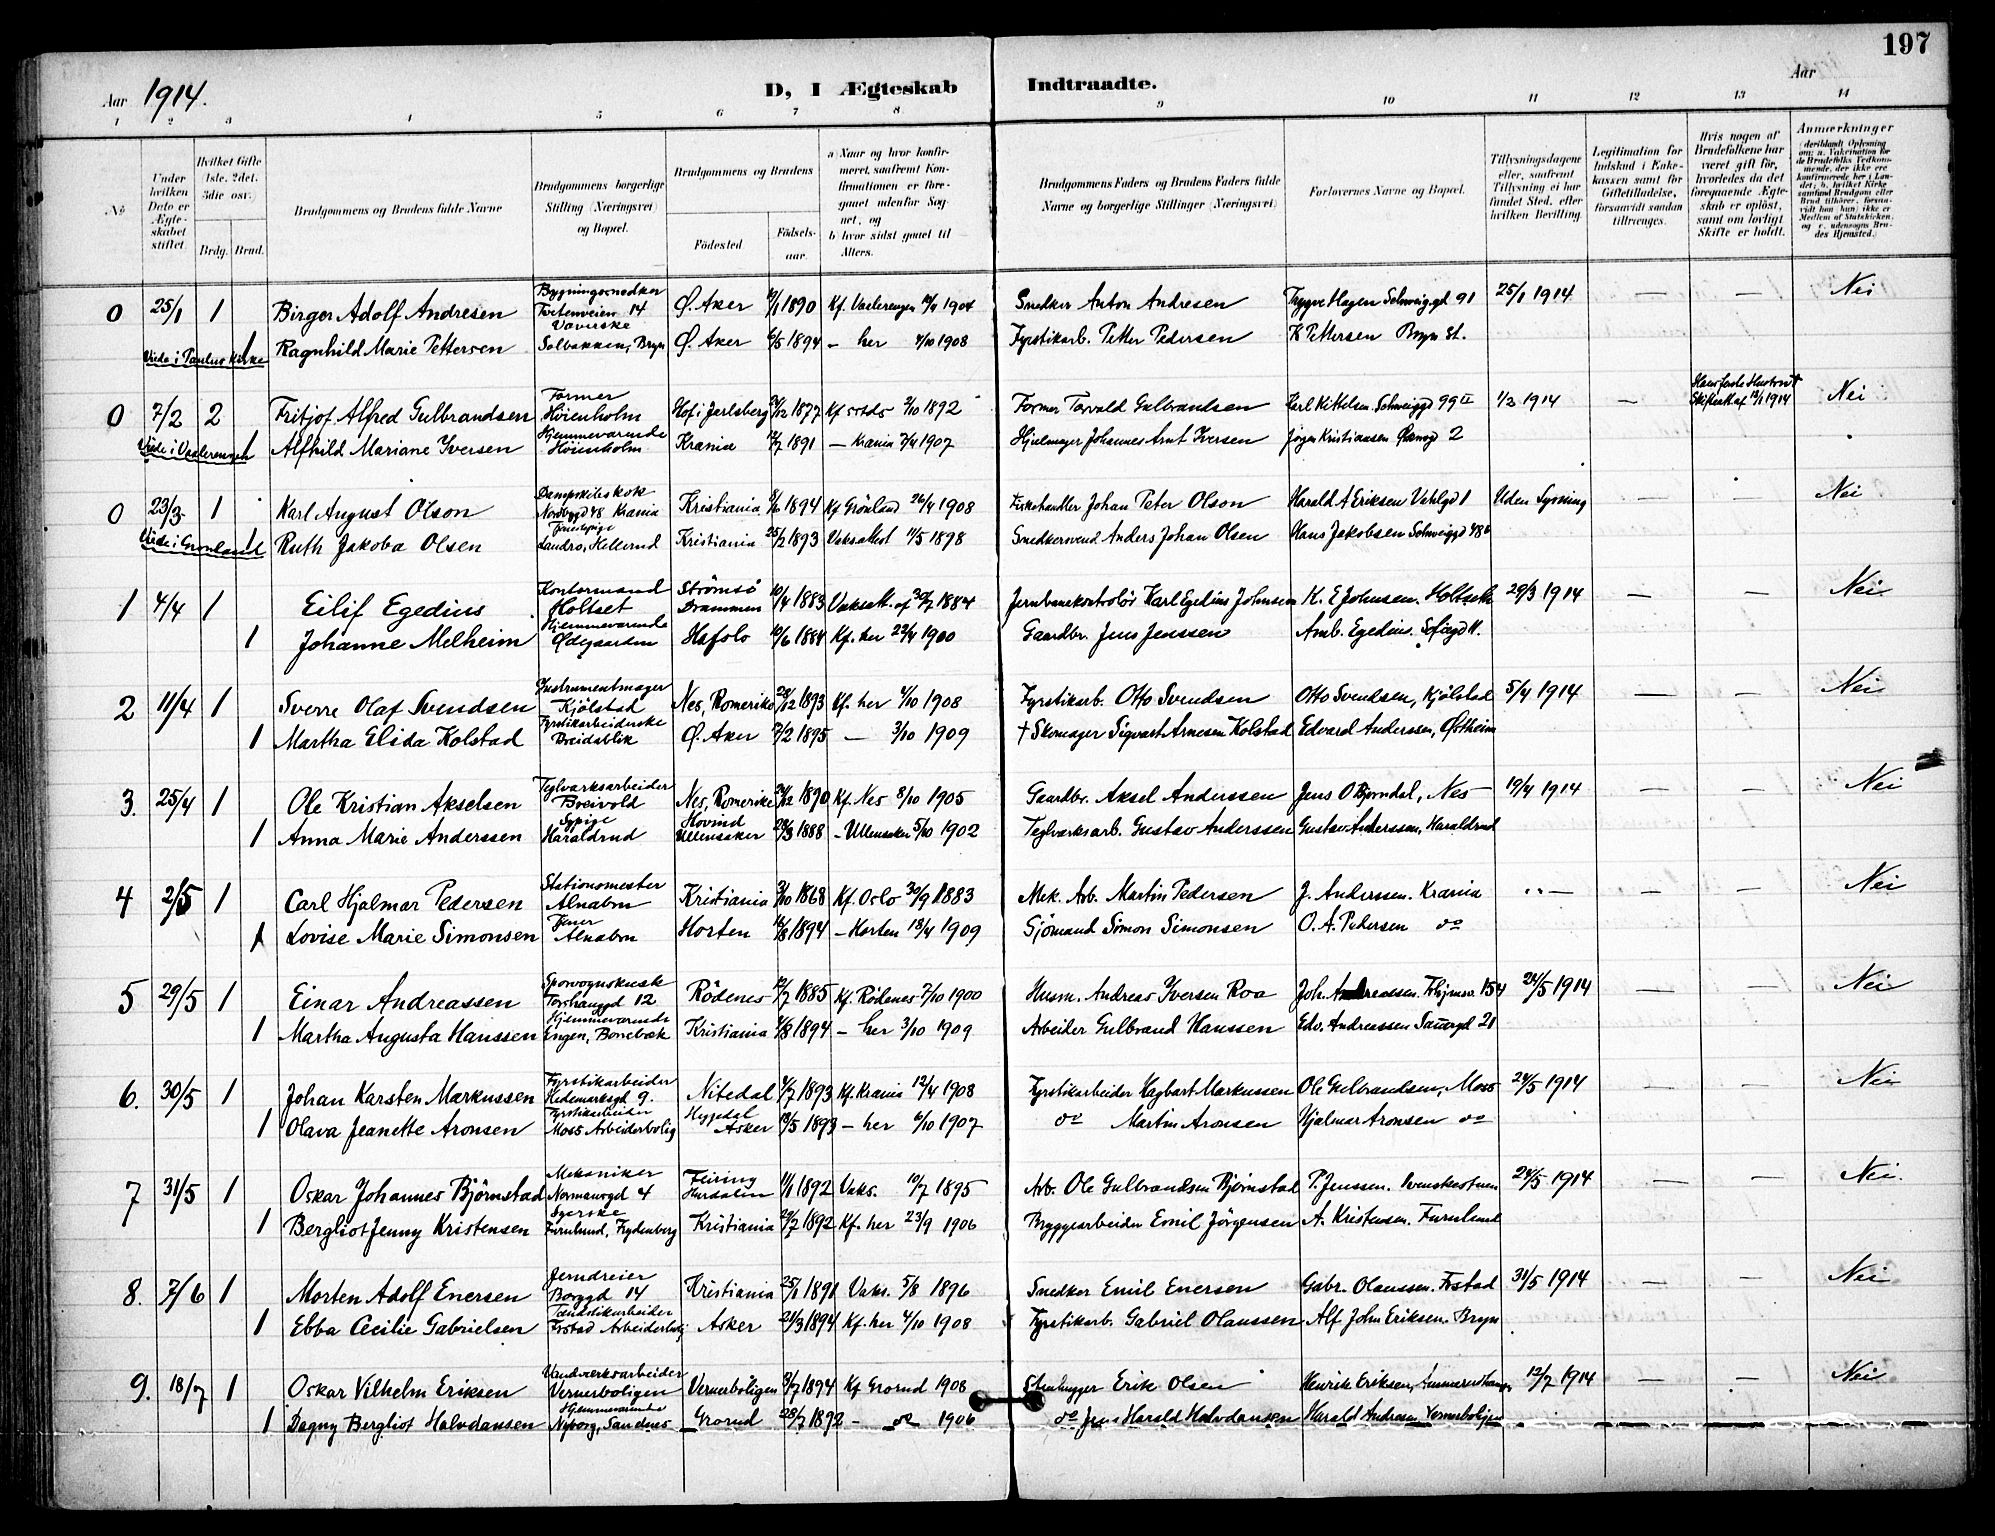 197
Aar 1914.
D, I Ægteskab Indtraadte.
Aar
1 2 3 4 5 6 7 8 9 10 11 12 13 14
No
Under hvilken Dato er Ægteskabet stiftet.
Hvilket Gifte 1ste, 2det, 3die osv.
Brdg. Brud.
Brudgommens og Brudens fulde Navne
Brudgommens borgerlige Stilling (Næringsvei) og Bopæl.
Brudgommens og Brudens
Fødested
Fødselsaar.
a) Naar og hvor konfirmeret, saafremt Konfirmationen er foregaaet udenfor Sognet, og
b) hvor sidst gaaet til Alters.
Brudgommens Faders og Brudens Faders fulde Navne og borgerlige Stillinger (Næringsvei)
Forlovernes Navne og Bopæl.
Tillysningsdagene eller, saafremt Tillysning ei har fundet Sted, efter hvilken Bevilling.
Legitimation for Indskud i Enkekassen samt for Giftetilladelse, forsaavidt saadan tiltrænges.
Hvis nogen af Brudefolkene har været gift før, hvorledes da det foregaaende Ægteskab er opløst, samt om lovligt Skifte er holdt.
Anmærkninger
0 25/1 1 Birger Adolf Andresen Bygningssnedker Tvetenveien 14 Ø. Aker 1890 Kf. Vaalerengen 1904 Snedker Anton Andresen Trygve Hagen Schweiggd 91 25/1 1914 — — Nei
Viede i Paulus Kirke 1 Ragnhild Marie Pettersen Væverske Solbakken, Bryn Ø. Aker 6/5 1894 — her 4/10 1908 Fyrstikarb. Petter Pedersen K Pettersen Bryn St.
0 7/2 2 Fritjof Alfred Gulbrandsen Former Høienholm Hof i Jarlsberg 1877 Kf 2/10 1892 Former Torvald Gulbrandsen Karl Kittelsen Schweiggd 99 II 1/2 1914 — Nei
Viede i Vaalerengen 1 Alfhild Mariane Iversen Hjemmeværende Høienholm Krania 1891 — Krania 1907 Hjulmager Johannes Arnt Iversen Jørgen Kristiansen 2
0 23/3 1 Karl August Olson Dampskibskok Nordbygd 48 Krania Kristiania 1894 Kf Grønland 26/4 1908 Fiskehandler Johan Peter Olson Harald A Eriksen Vahlgd 1 Uden Lysning — — Nei
Viede i Grønland 1 Ruth Jakoba Olsen Tjenestepige Landro, Hellerud Kristiania 25/2 1893 Vaks. 11/5 1898 Snedkersvend Anders Johan Olsen Hans Jakobsen Schweiggd 48
1 4/4 1 Eilif Egedius Kontormand Holtset Strømsø Drammen 10/4 1883 Vaksatt. af 1884 Jernbanekontrolør Karl Egedius Johnsen K. E Johnsen. Holtseth 29/3 1914 — — Nei
1 Johanne Melheim Hjemmeværende Ødegaarden Hafslo 10/6 1884 Kf. her 22/4 1900 Gaardbr. Jens Jenssen Amb. Egedius. Sofiegd 11.
2 11/4 1 Sverre Olaf Svendsen Instrumentmager Kjølstad Nes, Romerike 28/12 1893 Kf. her 4/10 1908 Fyrstikarb. Otto Svendsen Otto Svendsen, Kjølstad 5/4 1914 — — Nei
1 Martha Elida Kolstad Fyrstikarbeiderske Breidablik Ø. Aker 1895 — 3/10 1909 + Skomager Sigvart Arnesen Kolstad Edvard Anderssen, Østheim
3. 25/4 1 Ole Kristian Akselsen Teglverksarbeider Breivold Nes, Romerike 1890 Kf. Nes 8/10 1905 Gaardbr. Aksel Anderssen Jens O Bjørndal, Nes 19/4 1914 — — Nei
1 Anna Marie Anderssen Sypige Haraldrud Hovind Ullensaker 28/3 1888 — Ullensaker 5/10 1902 Teglverksarb. Gustav Anderssen Gustav Anderssen, Haraldrud
4 2/5 1 Carl Hjalmar Pedersen Stationsmester Alnabru Kristiania 1868 Kf. Oslo 30/9 1883 Mek. Arb. Martin Pedersen J. Anderssen. Krania — — — Nei
1 Lovise Marie Simonsen Alnabru Horten 16/8 1894 — Horten 18/4 1909 Sjømand Simon Simonsen O. A. Pedersen do
5 29/5 1 Einar Andreassen Sporvognskusk Torshauggd 12 Rødenes 1885 Kf. Rødenes 7/10 1900 Husm. Andreas Iversen Roa Joh. Andreassen. 154 24/5 1914 — — Nei
1 Martha Augusta Hanssen Hjemmeværende Engen, Bonebæk Kristiania 1894 — her 3/10 1909 Arbeider Gulbrand Hanssen Edv. Andreassen 21
6. 30/5 1 Johan Karsten Markussen Fyrstikarbeider Hedemarksgd 9. Nitedal 1893 Kf. Krania 12/4 1908 Fyrstikarbeider Hagbart Markussen Ole Gulbrandsen, Moss 24/5 1914 — — Nei
1 Olava Jeanette Aronsen Fyrstikarbeider Moss Arbeiderbolig Asker 1893 — her 6/10 1907 do Martin Aronsen Hjalmar Aronsen do
7 31/5 1 Oskar Johannes Bjørnstad Mekaniker Normansgd 4 Feiring Hurdalen 11/1 1892 Vaks. 1895 Arb. Ole Gulbrandsen Bjørnstad P. Jenssen. Svenskestuen 24/5 1914 — — Nei.
1 Bergliot Jenny Kristensen Syerske Furulund, Frydenberg Kristiania 1892 Kf. her 23/9 1906 Bryggearbeider Emil Jørgensen A. Kristensen. Furulund
8. 7/6 1 Morten Adolf Enersen Jerndreier Borggd 14 Kristiania 25/1 1891 Vaks. 5/8 1896 Snedker Emil Enersen Gabr. Olaussen. Frstad 31/5 1914 — — Nei
1 Ebba Cecilie Gabrielsen Tændstikarbeider Frstad Arbeiderbolig Asker 21/3 1894 Kf. her 4/10 1908 Fyrstikarb. Gabriel Olaussen Alf John Eriksen. Bryn
9. 18/7 1 Oskar Vilhelm Eriksen Vandverksarbeider Vernerboligen Vernerboligen 1894 Kf Grorud 1908 Stenhugger Erik Olsen Henrik Eriksen, 12/7 1914 — — Nei
1 Dagny Bergliot Halvdansen Hjemmeværende Nyborg, Sandnes Grorud 28/7 1892 — do 1906 do Jens Harald Halvdansen Harald Andresen Vernerboligen